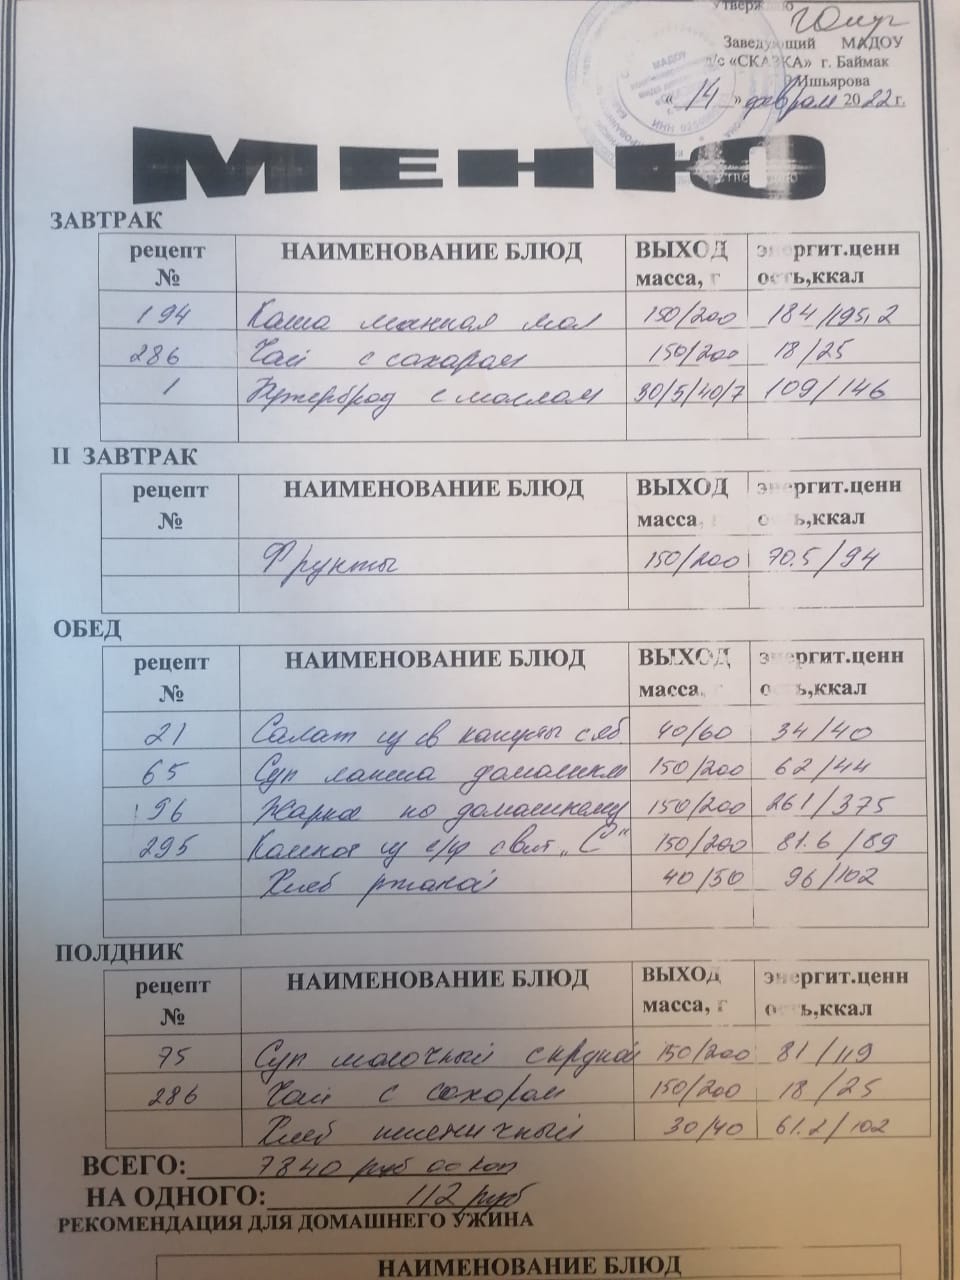 Утверждаю
Заведующий МАДОУ
д/с «СКАЗКА» г. Баймак
Ишьярова
« 14 » февраля 2022 г.
МАДОУ
МЕНЮ
ЗАВТРАК
рецепт № НАИМЕНОВАНИЕ БЛЮД ВЫХОД масса, г энергит.ценность,ккал
194 Каша манная мол 150/200 184/195,2
286 Чай с сахаром 150/200 18/25
1 Бутерброд с маслом 30/5/40/7 109/146
II ЗАВТРАК
рецепт № НАИМЕНОВАНИЕ БЛЮД ВЫХОД масса, г энергит.ценность,ккал
Фрукты 150/200 70.5/94
ОБЕД
рецепт № НАИМЕНОВАНИЕ БЛЮД ВЫХОД масса, г энергит.ценность,ккал
21 Салат из св капусты с яб 40/60 34/40
65 Суп лапша домашняя 150/200 62/44
96 Жаркое по домашнему 150/200 261/375
295 Компот из с/ф с вит „С" 150/200 81.6/89
Хлеб ржаной 40/50 96/102
ПОЛДНИК
рецепт № НАИМЕНОВАНИЕ БЛЮД ВЫХОД масса, г энергит.ценность,ккал
75 Суп молочный с крупой 150/200 81/119
286 Чай с сахаром 150/200 18/25
Хлеб пшеничный 30/40 61.2/102
ВСЕГО: 7840 руб 00 коп
НА ОДНОГО: 112 руб
РЕКОМЕНДАЦИЯ ДЛЯ ДОМАШНЕГО УЖИНА
НАИМЕНОВАНИЕ БЛЮД